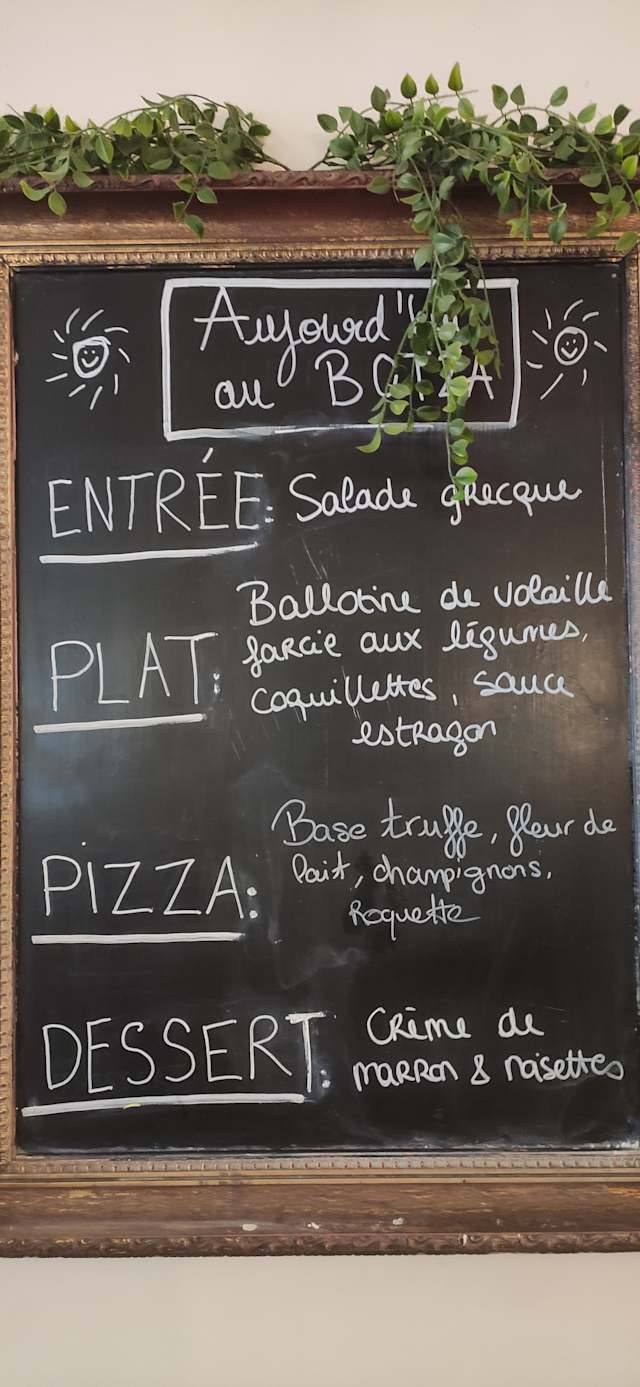 Aujourd'hui
au
ENTRÉE: Salade grecque
Ballotine de volaille
farcie aux légumes,
PLAT: coquillettes, sauce
estragon
Base truffe, fleur de
PIZZA: lait, champignons,
Roquette
DESSERT: Crème de
marron & noisettes